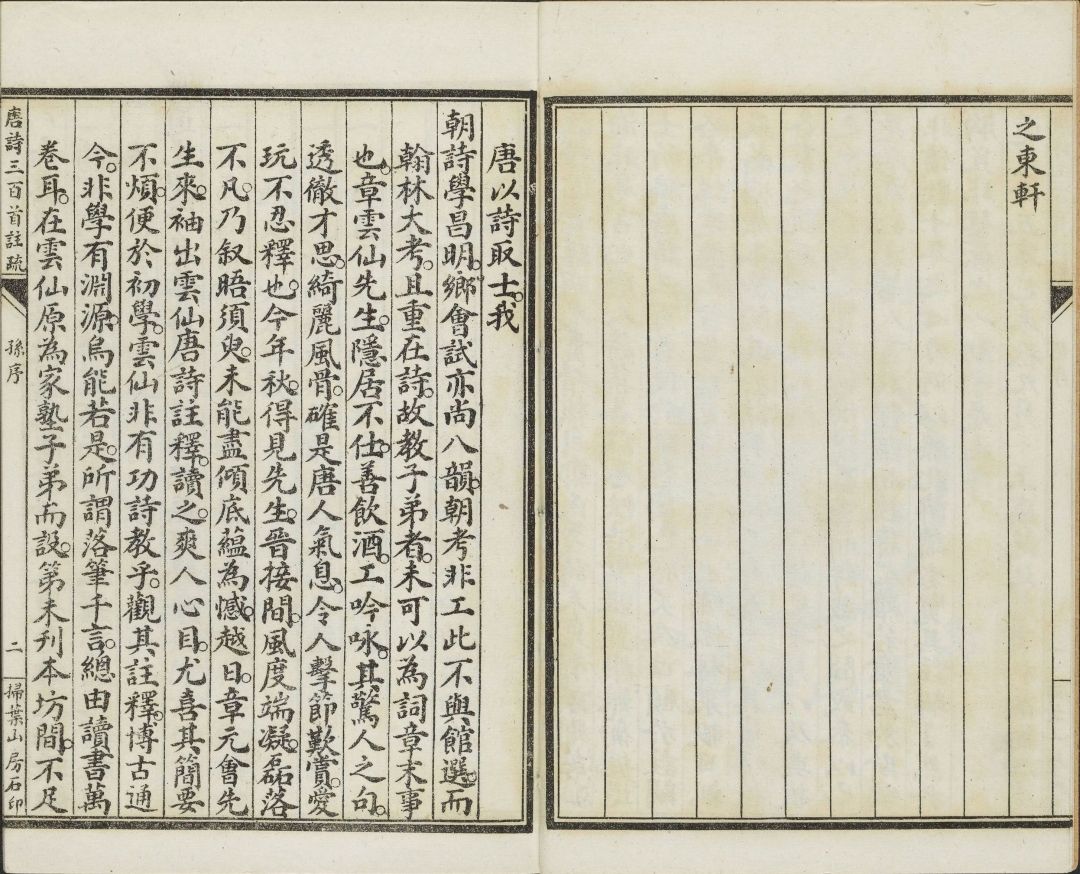 之東軒
唐以詩取士。我
朝詩學昌明。鄉會試亦尚八韻。朝考非工此不與館選。而
翰林大考。且重在詩。故教子弟者。未可以為詞章末事
也。章雲仙先生。隱居不仕。善飲酒。工吟咏。其驚人之句。
透徹才思。綺麗風骨。確是唐人氣息。令人擊節歎賞。愛
玩不忍釋也。今年秋。得見先生。晉接間。風度端凝。磊落
不凡。乃叙晤須臾。未能盡傾底蘊為憾。越日。章元會先
生來。袖出雲仙唐詩註釋。讀之。爽人心目。尤喜其簡要
不煩。便於初學。雲仙非有功詩教乎。觀其註釋。博古通
今。非學有淵源。烏能若是。所謂落筆千言。總由讀書萬
卷耳。在雲仙原為家塾子弟而設。第未刊本坊間。不足
唐詩三百首註疏
孫序
二
掃葉山房石印